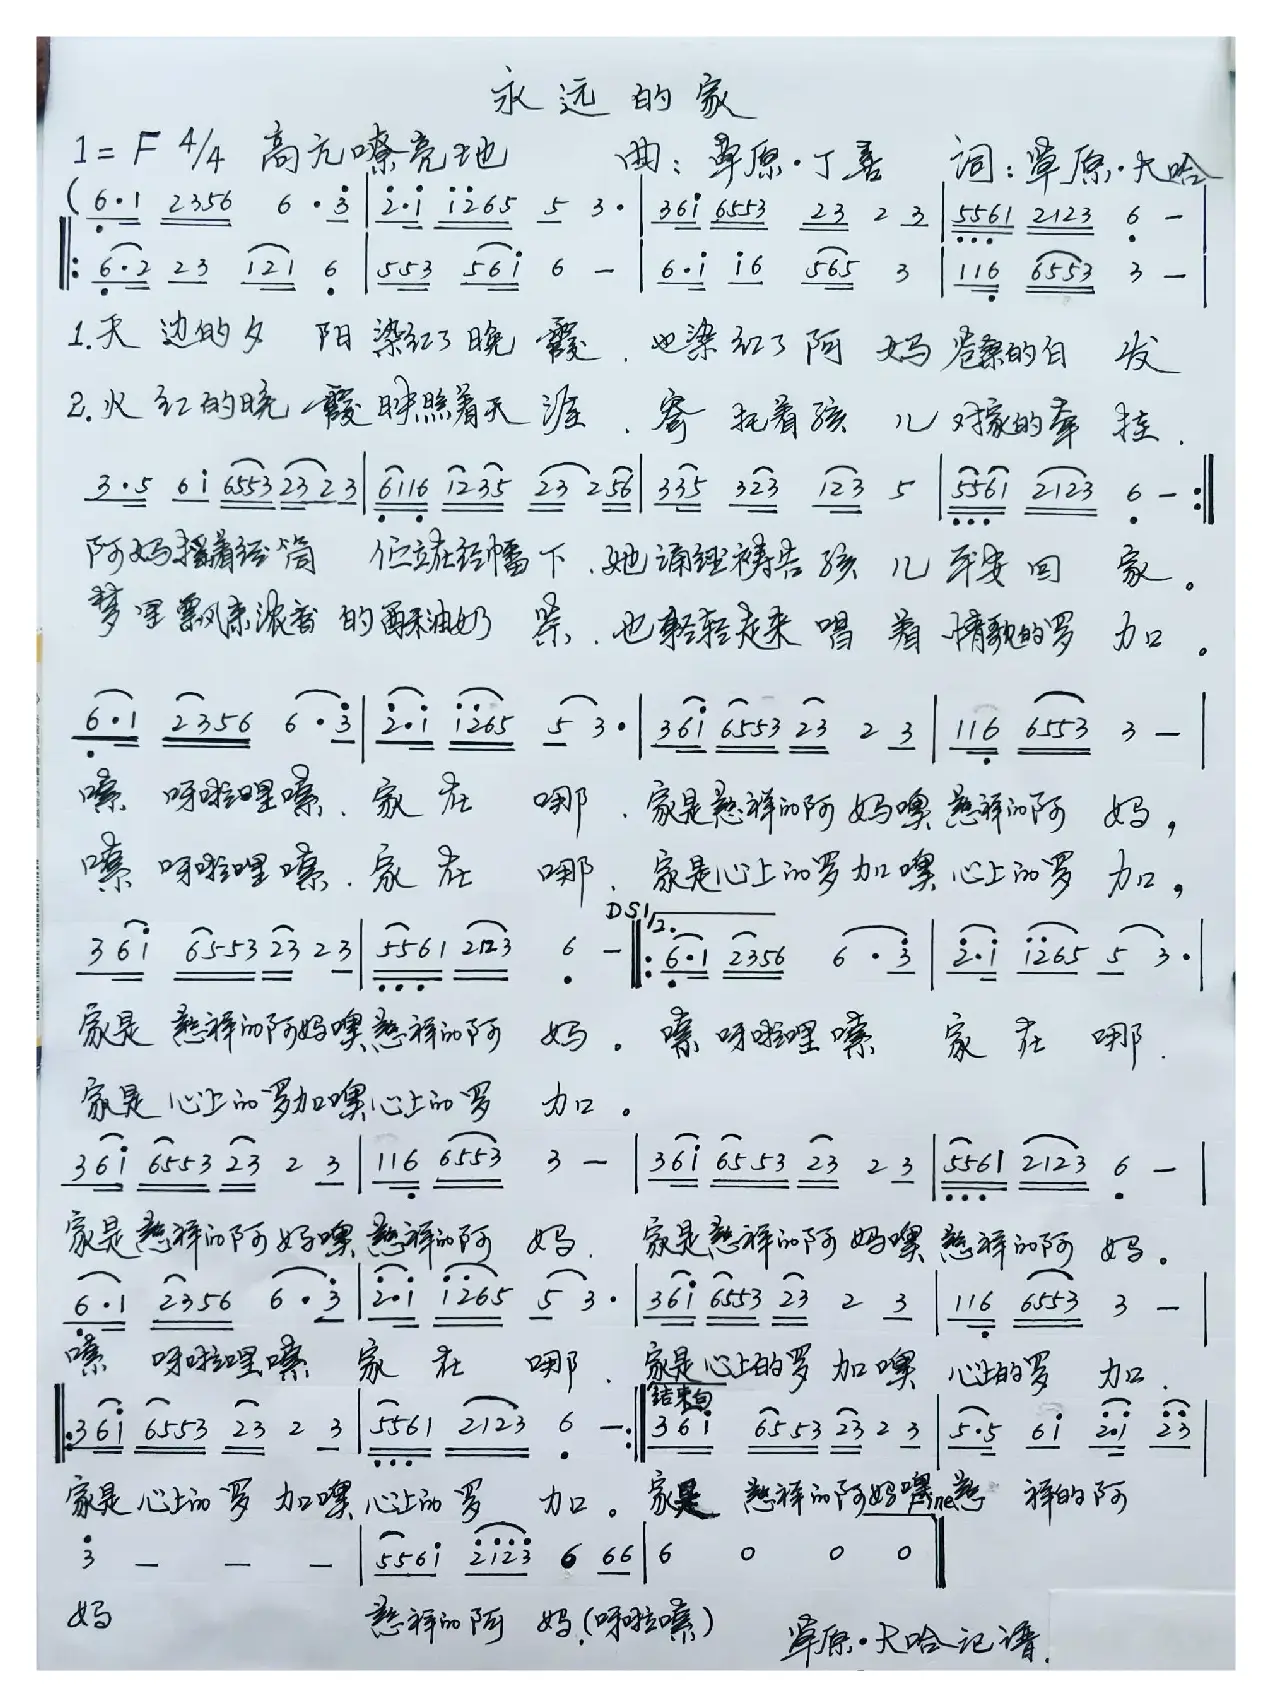 永远的家
1=F 4/4 高亢嘹亮地 曲:草原·丁喜 词:草原·大哈
(6·1 2356 6·3 | 2·i i265 5 3· | 36i 6553 23 2 3 | 5561 2123 6 -
‖: 6·2 23 121 6 | 553 56i 6 - | 6·i i6 565 3 | 116 6553 3 - |
1.天边的夕阳染红了晚霞.也染红了阿妈苍桑的白发
2.火红的晚霞映照着天涯.寄托着孩儿对家的牵挂.
3·5 6i 6553 23 2 3 | 6116 1235 23 256 | 335 323 123 5 | 5561 2123 6 - :‖
阿妈摇着经筒 伫立在经幡下.她诵经祷告孩儿平安回家。
梦里飘来浓香的酥油奶茶.也轻轻走来唱着情歌的罗加。
6·1 2356 6·3 | 2·i i265 5 3· | 36i 6553 23 2 3 | 116 6553 3 - |
嗦呀啦哩嗦.家在哪.家是慈祥的阿妈噢慈祥的阿妈,
嗦呀啦哩嗦.家在哪.家是心上的罗加噢心上的罗加,
DS 1/2.
3 6i 6553 23 2 3 | 5561 2123 6 - ‖: 6·1 2356 6·3 | 2·i i265 5 3·
家是慈祥的阿妈噢慈祥的阿妈。嗦呀啦哩嗦 家在哪.
家是心上的罗加噢心上的罗加。
36i 6553 23 2 3 | 116 6553 3 - | 36i 6553 23 2 3 | 5561 2123 6 - |
家是慈祥的阿妈噢慈祥的阿妈.家是慈祥的阿妈噢慈祥的阿妈。
6·1 2356 6·3 | 2·i i265 5 3· | 36i 6553 23 2 3 | 116 6553 3 - |
嗦呀啦哩嗦 家在哪.家是心上的罗加噢心上的罗加.
结束句
‖: 36i 6553 23 2 3 | 5561 2123 6 - :‖ 36i 6553 23 2 3 | 5·5 6i 2·i 23 |
家是心上的罗加噢心上的罗加。家是慈祥的阿妈噢慈祥的阿
Fine
3 - - - | 556i 2123 6 66 | 6 0 0 0 ‖
妈 慈祥的阿妈.(呀啦嗦)
草原·大哈记谱.